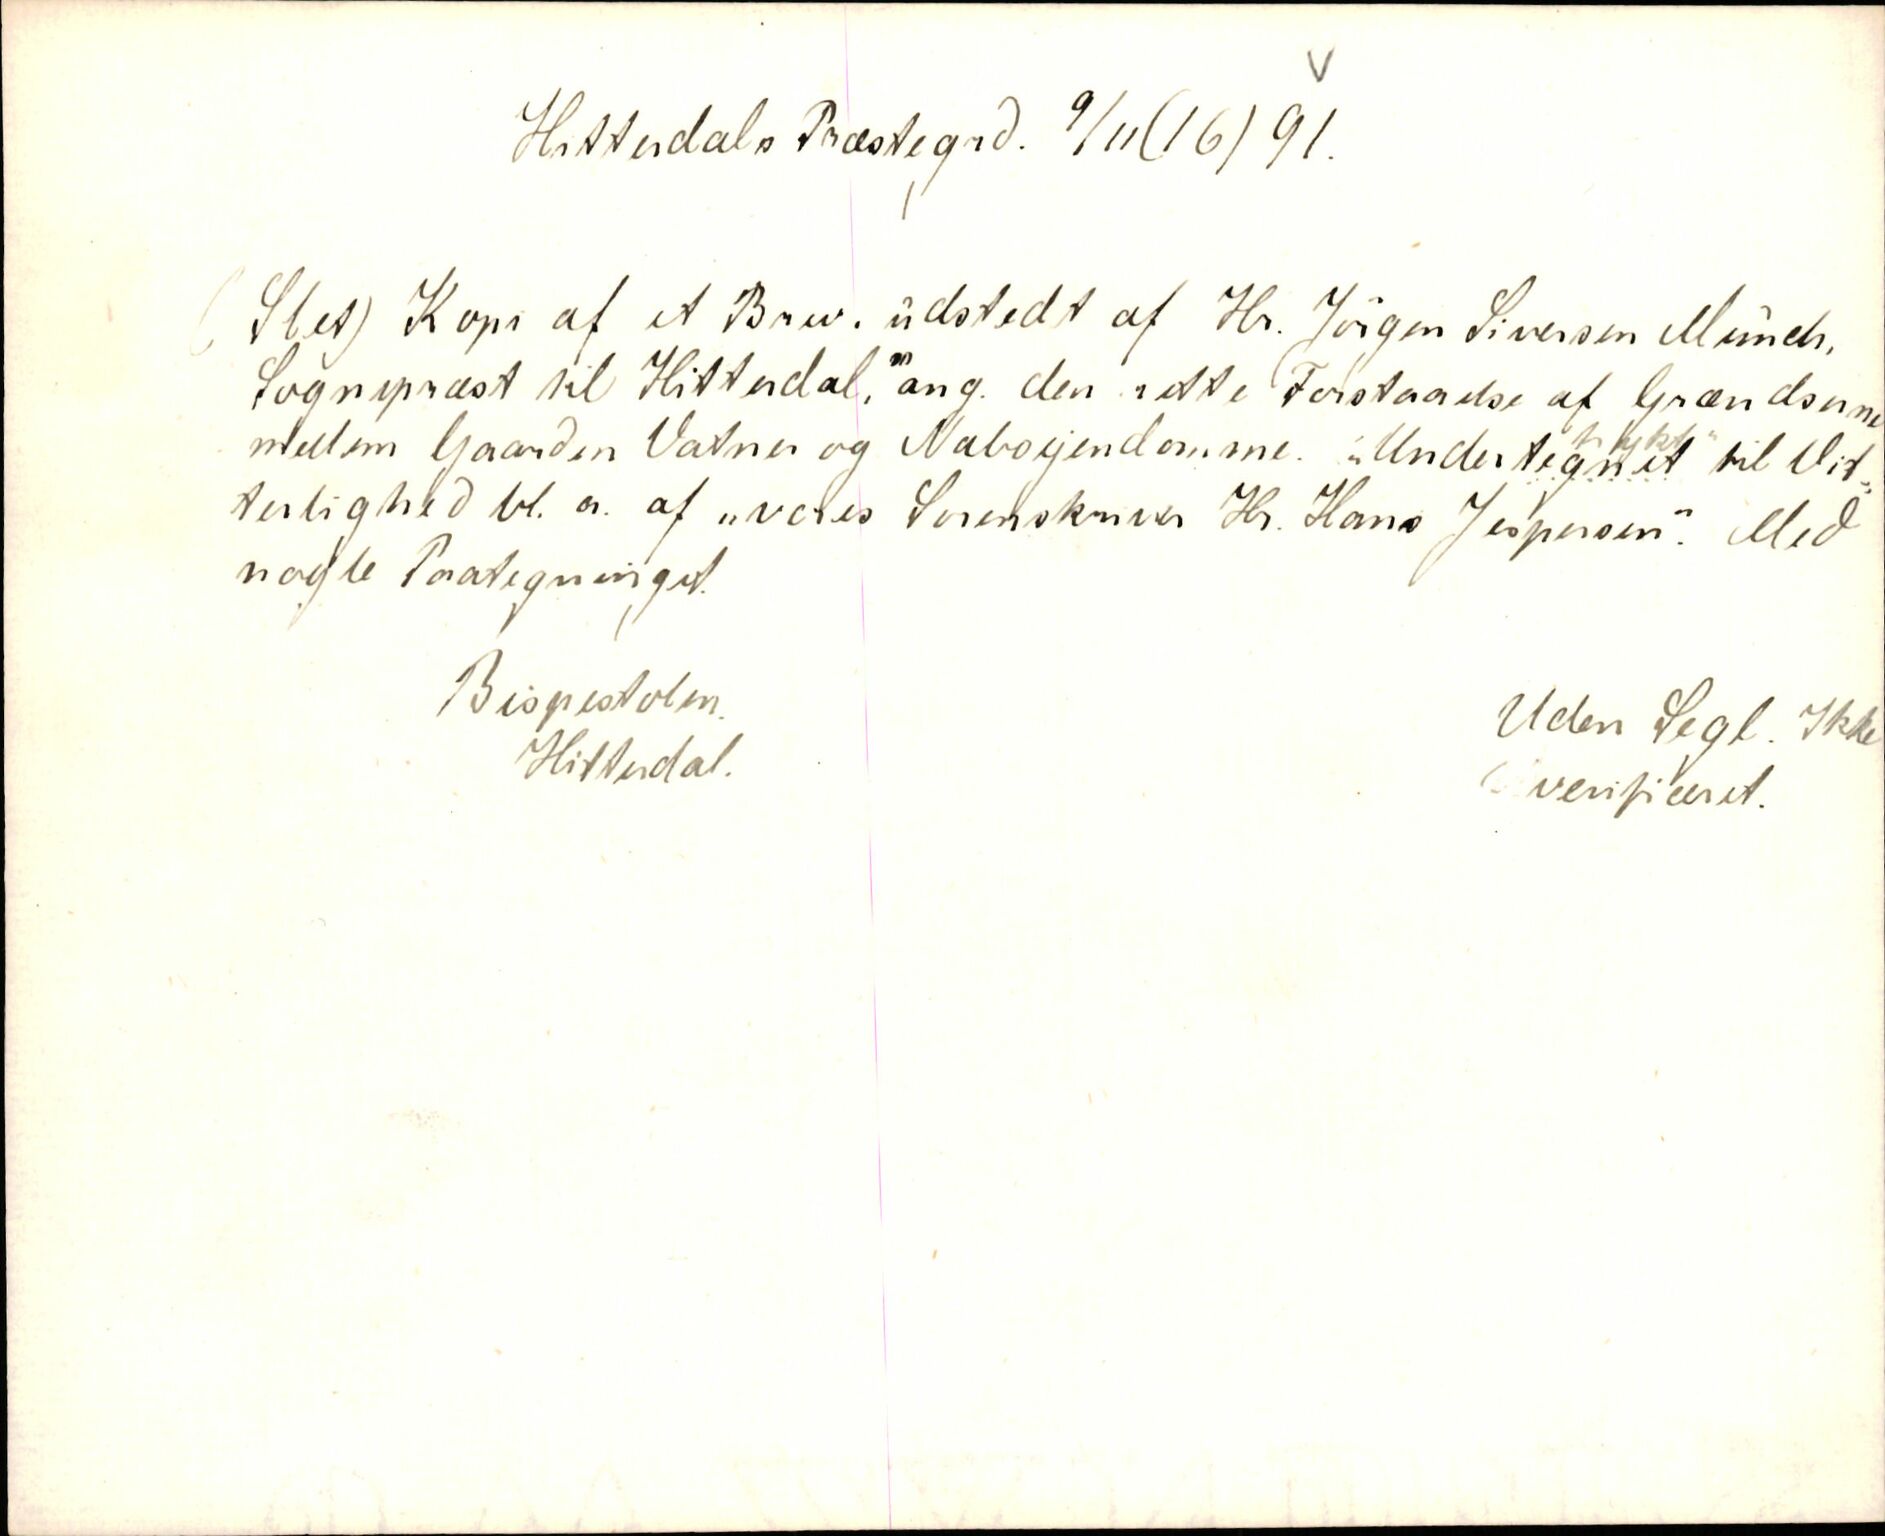 V
Hitterdals Præstegrd. 9/11 (16) 91.
(Slet) Kopi af et Brev. udstedt af Hr. Jörgen Siversen Münch,
Sognepræst til Hitterdal, ang. den rette Forstaaelse af Grændserne
mellem Gaarden Vatner og Naboejendomme. "Undertegnet" til Vit-
trykt"
terlighed bl. a. af "vores Sorenskriver Hr. Hans Jespersen". Med
nogle Paategninger.
Bispestolen.
Hitterdal.
Uden Segl. Ikke
verificeret.